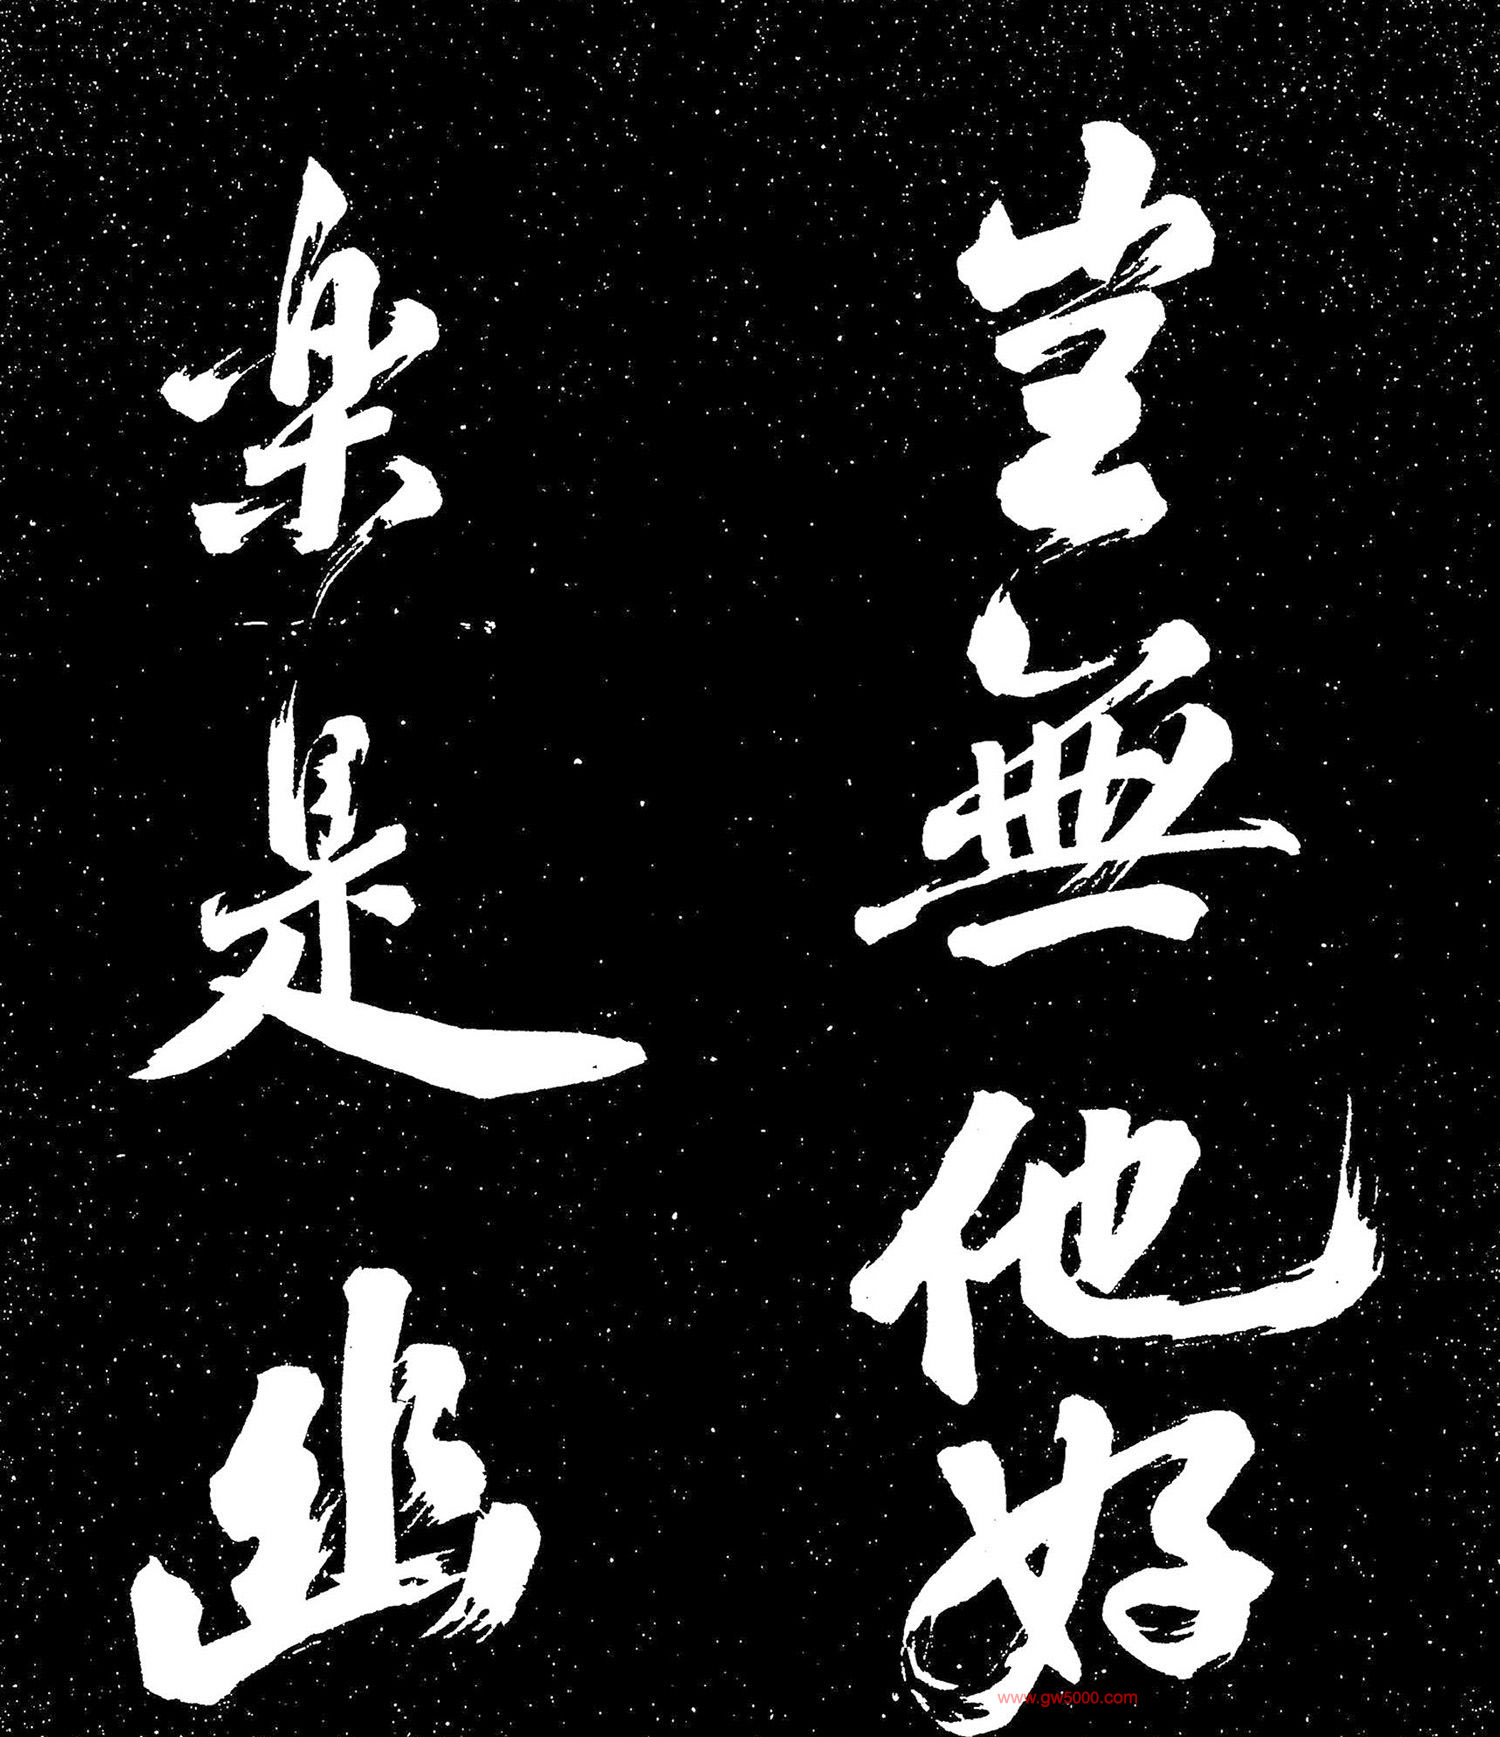 豈無他好
樂是幽
www.gw5000.com